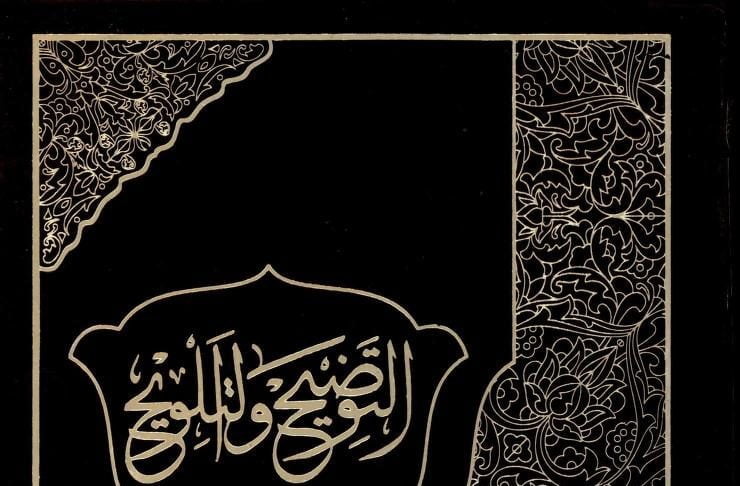 التوضيح والتلويح